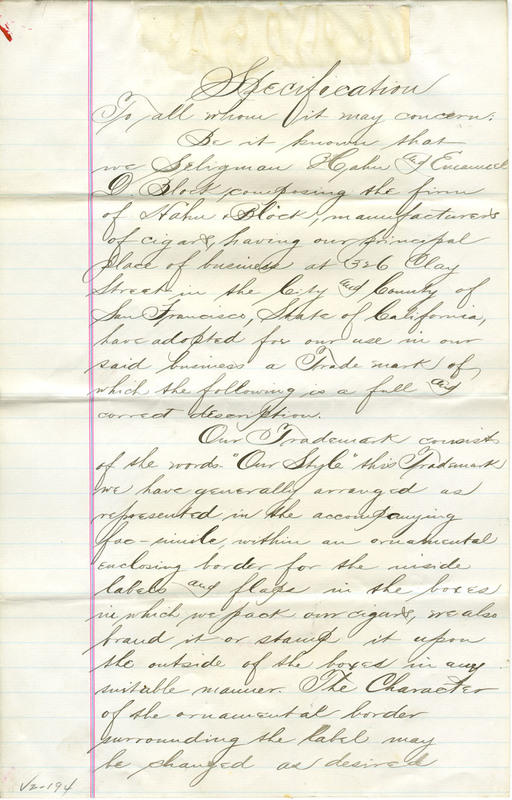 Specification
To all whom it may concern:
Be it known that
we Seligman Hahn and Emanuel
D. Block, composing the firm
of Hahn & Block, manufacturers
of cigars, having our principal
place of business at 326 Clay
Street in the City and County of
San Francisco, State of California,
have adopted for our use in our
said business a Trade mark of
which the following is a full and
correct description.
Our Trademark consists
of the words "Our Style" this Trademark
we have generally arranged as
represented in the accompanying
fac-simile, within an ornamental
enclosing border for the inside
labels and flaps in the boxes
in which we pack our cigars, we also
brand it or stamp it upon
the outside of the boxes in any
suitable manner. The Character
of the ornamental border
surrounding the label may
be changed as desired
V2-194